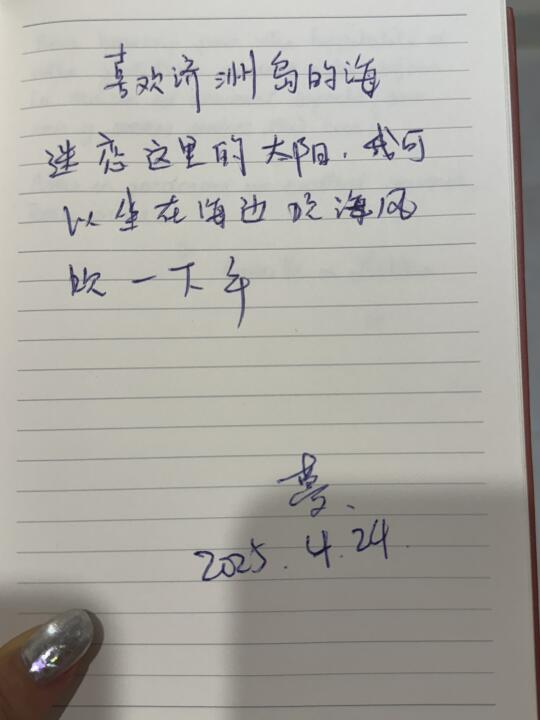 喜欢济洲岛的海
迷恋这里的太阳. 我可
以坐在海边吹海风
吹一下午
2025. 4. 24.